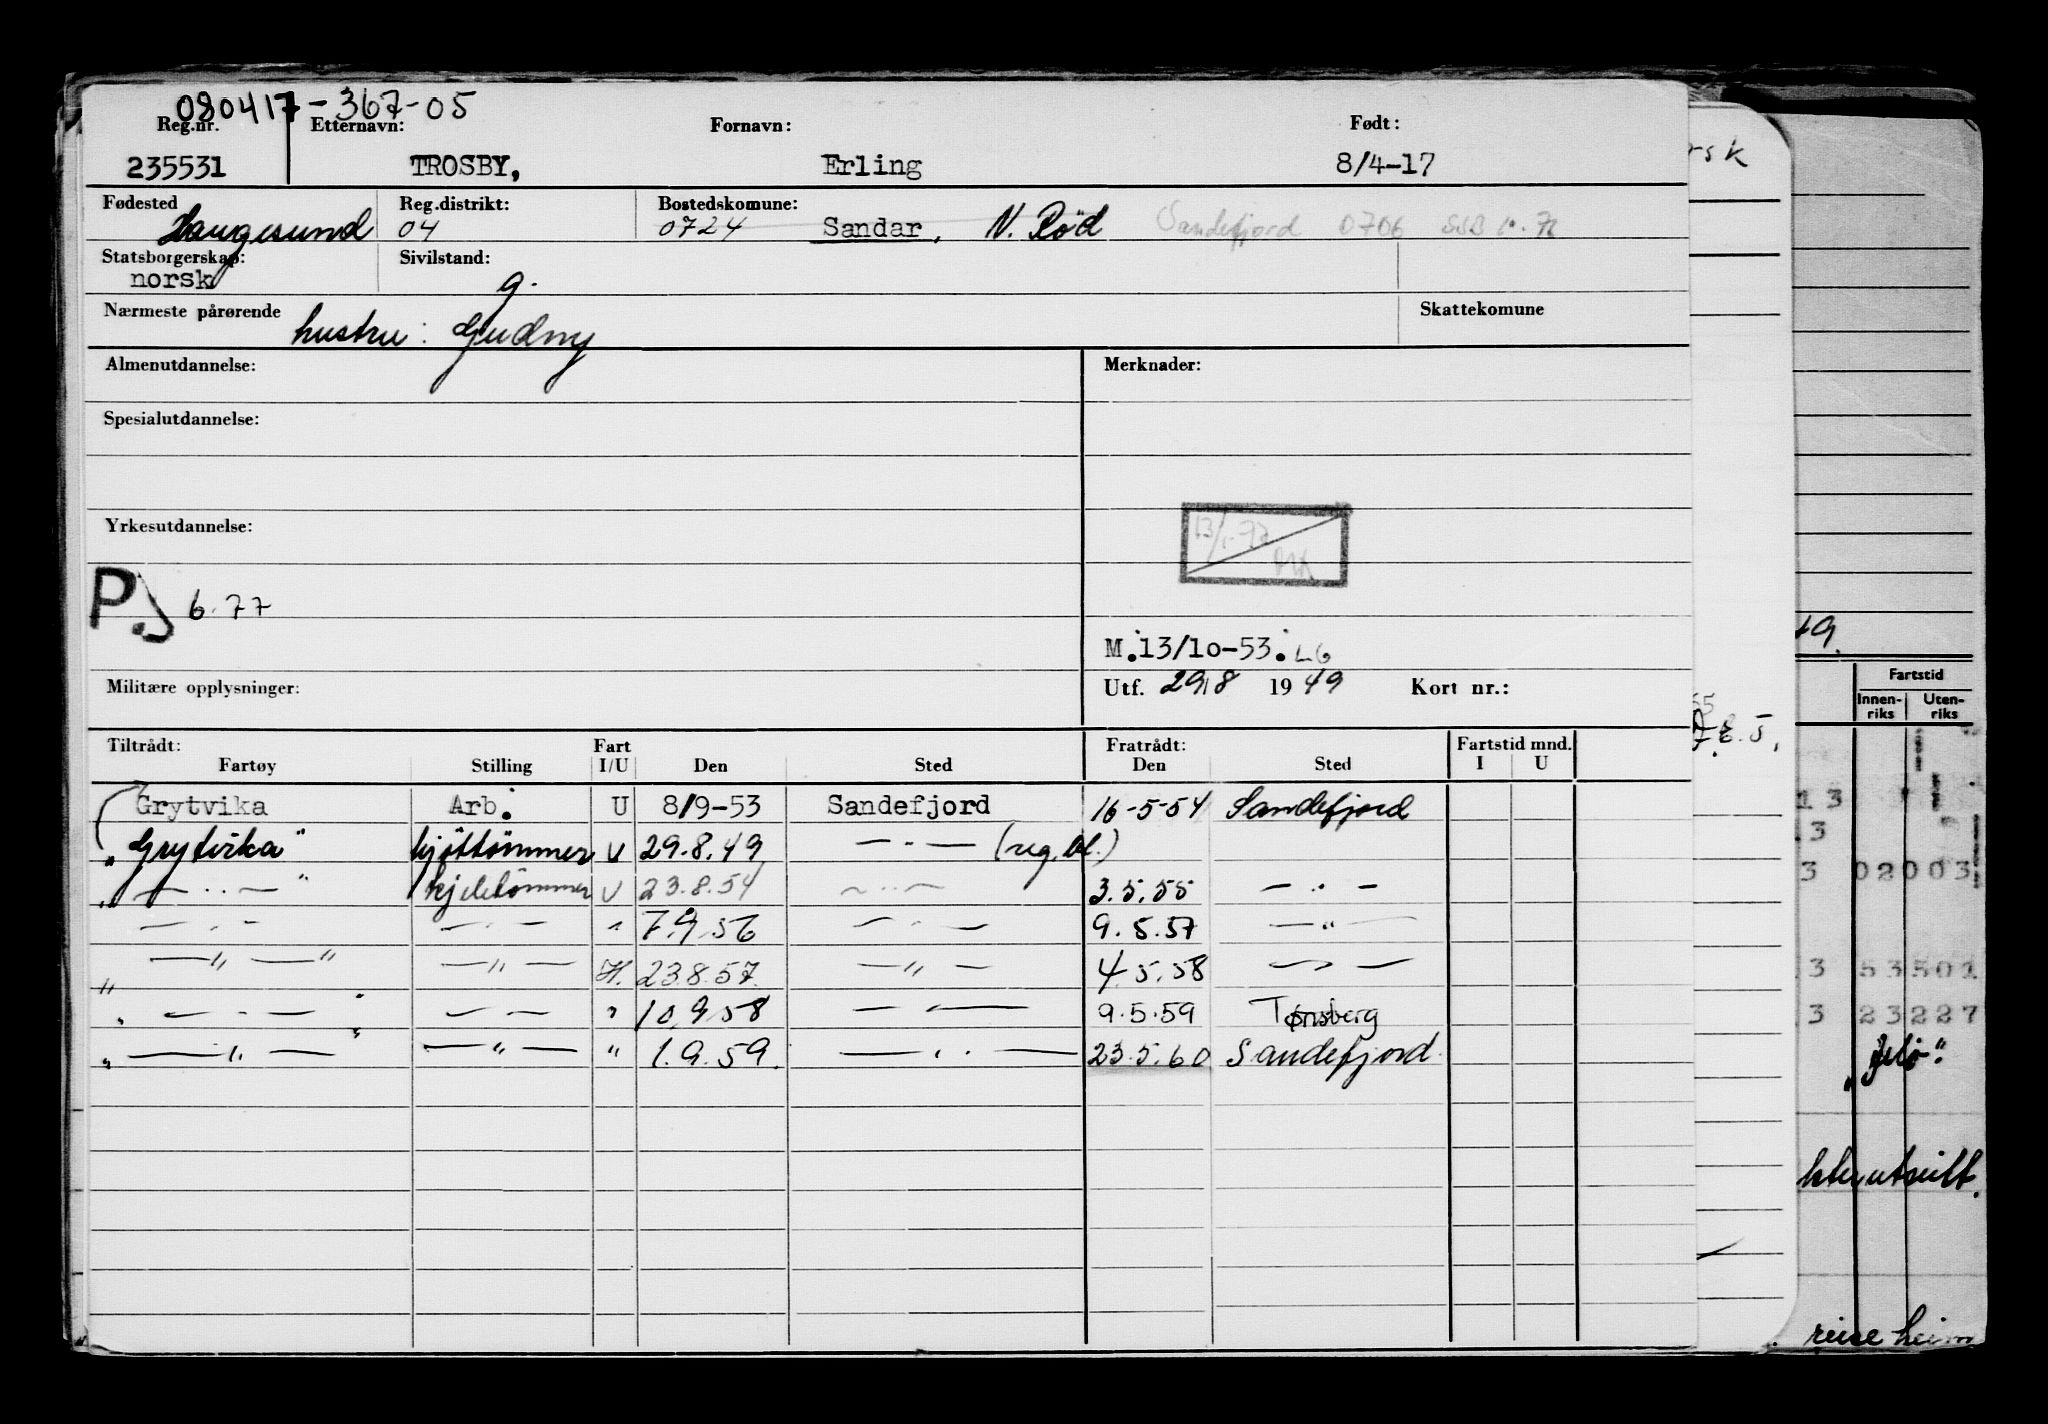 080417-367-05
Reg.nr. Etternavn: Fornavn: Født:
235531 TROSBY, Erling 8/4-17
Fødested Reg.distrikt: Bostedskomune:
Haugesund 04 0724 Sandar, N. Rød Sandefjord 0706 SSB
Statsborgerskap: Sivilstand:
norsk g.
Nærmeste pårørende Skattekomune
hustru: Gudny
Almenutdannelse: Merknader:
Spesialutdannelse:
Yrkesutdannelse:
P.J 6.77
M.13/10-53. LG
Militære opplysninger: Utf. 29/8 1949 Kort nr.:
Tiltrådt: Fart Fratrådt: Fartstid mnd.
Fartøy Stilling I/U Den Sted Den Sted I U
Grytvika Arb. U 8/9-53 Sandefjord 16-5-54 Sandefjord
"Grytvika" kjøttømmer U 29.8.49 — " — (reg.bl.)
" — " — " kjeletømmer U 23.8.54 — " — 3.5.55 — " —
— " — — " — " 7.9.56 — " — 9.5.57 — " —
" — " — " — " — 23.8.57. — " — 4.5.58 — " —
" — " — " — " — " 10.9.58 — " — 9.5.59 Tønsberg
" — " — " — " — " 1.9.59. — " — 23.5.60 Sandefjord.
rsk
8.5.
19.
Fartstid
Innen-riks Uten-riks
13
3
3 02 003
3 53 501
3 23 227
"Jelø".
reise heim